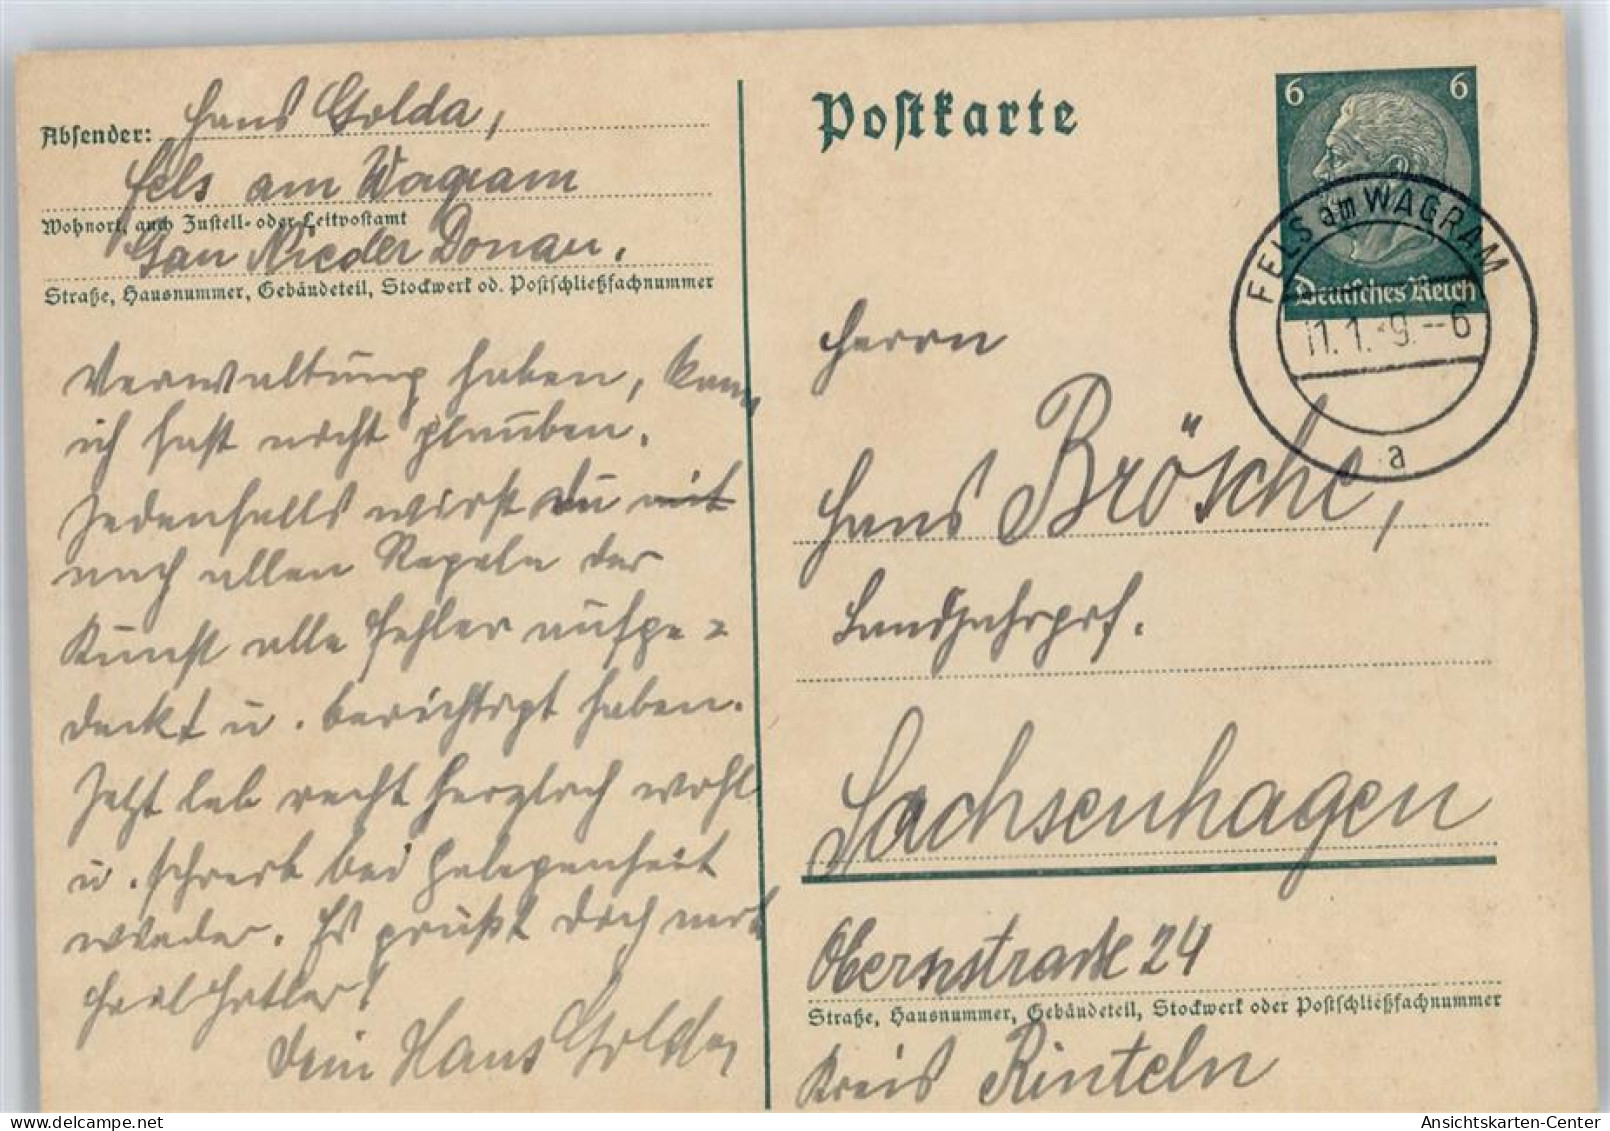 Absender: Hans Golda,
Fels am Wagram
Wohnort, auch Zustell- oder Leitpostamt
Gau Nieder Donau.
Straße, Hausnummer, Gebäudeteil, Stockwerk od. Postschließfachnummer
Verwaltung haben, kann
ich fast nicht glauben.
Jedenfalls wirst du mit
nach allen Regeln der
Kunst alle Fehler aufge=
deckt u. berichtigt haben.
Jetzt leb recht herzlich wohl
u. schreib bei Gelegenheit
wieder. Es grüßt dich mit
Heil Hitler!
Dein Hans Golda
Postkarte
6 6
Deutsches Reich
FELS am WAGRAM
11.1.39.--6
a
Herrn
Hans Brösche,
Landjahrgrf.
Sachsenhagen
24
Straße, Hausnummer, Gebäudeteil, Stockwerk oder Postschließfachnummer
Kreis Rinteln
Ansichtskarten-Center